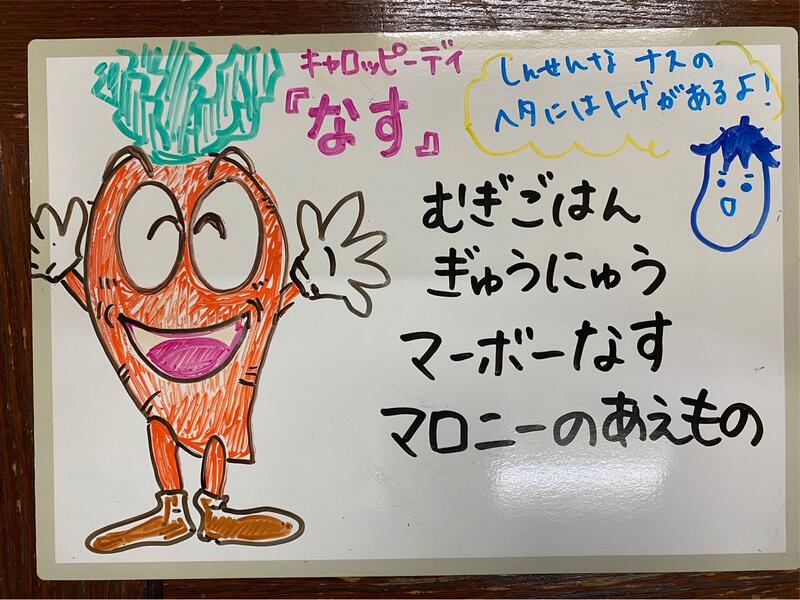 キャロッピーデイ
『なす』
しんせんな ナスの
ヘタにはトゲがあるよ!
むぎごはん
ぎゅうにゅう
マーボーなす
マロニーのあえもの